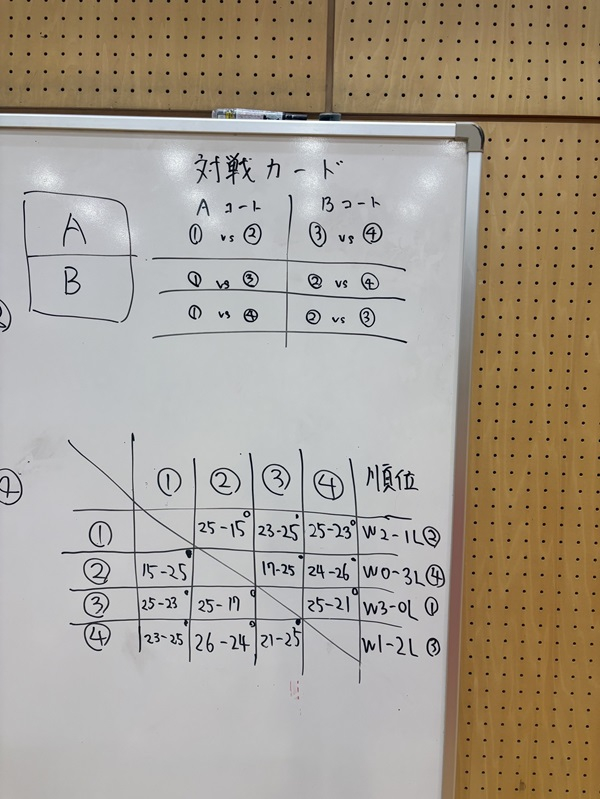 対戦カード
A コート B コート
A
① vs ② ③ vs ④
B
① vs ③ ② vs ④
① vs ④ ② vs ③
① ② ③ ④ 順位
① 25-15 23-25 25-23 W2-1L ②
② 15-25 17-25 24-26 W0-3L ④
③ 25-23 25-17 25-21 W3-0L ①
④ 23-25 26-24 21-25 W1-2L ③